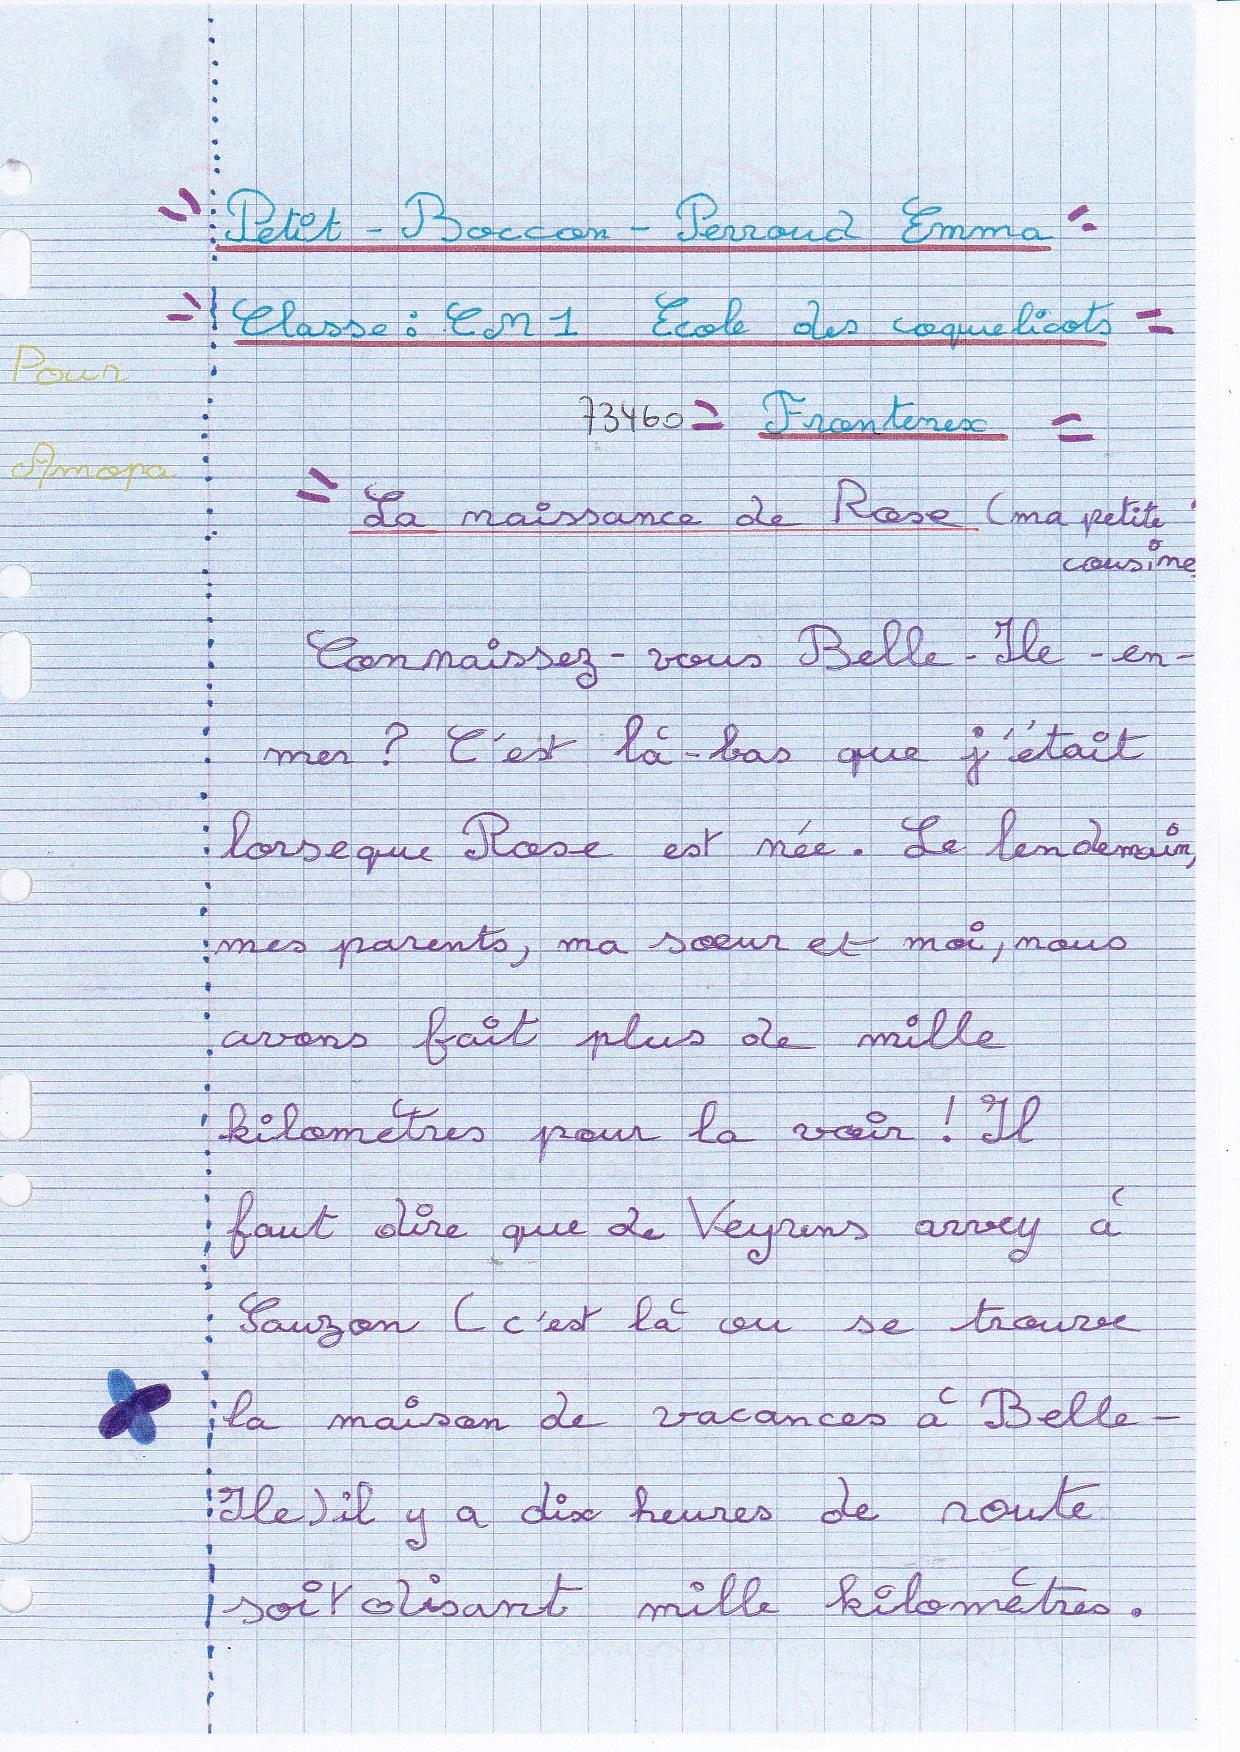 Petit - Boccon - Perroud Emma
Classe : CM1 Ecole des coquelicots
Pour
73460 Frontenex
Amopa
La naissance de Rose (ma petite
cousine
Connaissez-vous Belle-Ile-en-
mer ? C'est là-bas que j'était
lorseque Rose est née. Le lendemain,
mes parents, ma soeur et moi, nous
avons fait plus de mille
kilomètres pour la voir ! Il
faut dire que de Veyrens arvey à
Sauzon (c'est là ou se trouve
la maison de vacances à Belle-
Ile) il y a dix heures de route
soit disant mille kilomètres.